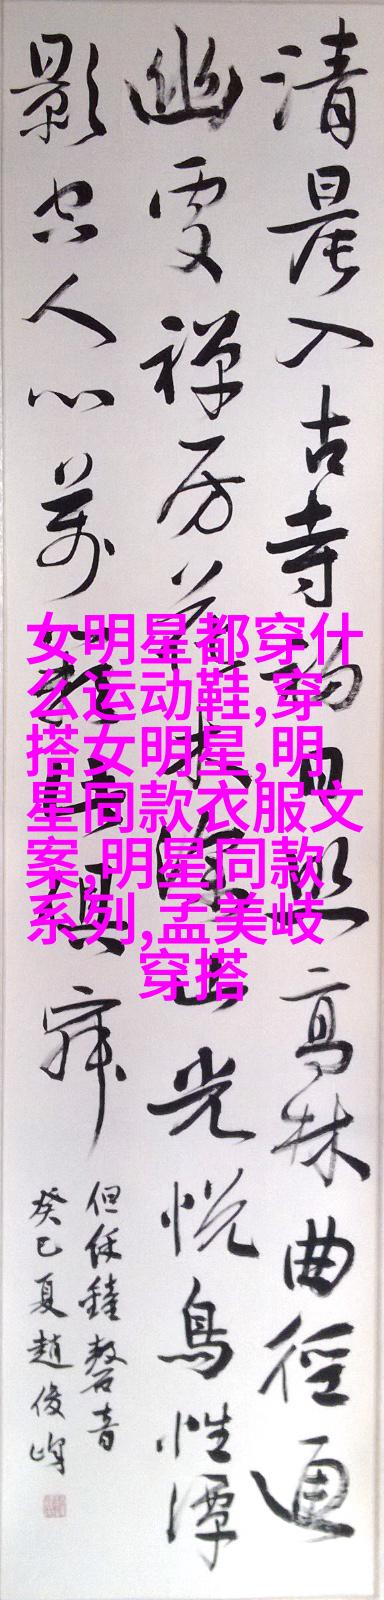 清晨入古寺初日照高林曲徑通
幽處禪房花木深山光悅鳥性潭
影空人心萬籟此俱寂
但餘鐘磬音
癸巳夏趙俊峰
女明星都穿什
么运动鞋,穿
搭女明星,明
星同款衣服文
案,明星同款
系列,孟美岐
穿搭